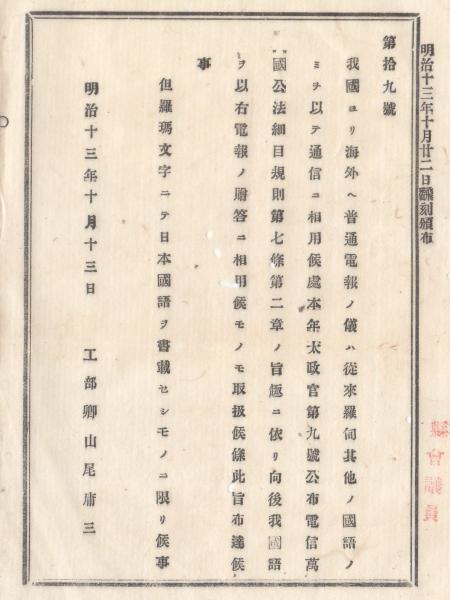 明治十三年十月廿二日飜刻頒布
第拾九號
我國ヨリ海外ヘ普通電報ノ儀ハ從來羅甸其他ノ國語ノ
ミヲ以テ通信ニ相用候處本年太政官第九號公布電信萬
國公法細目規則第七條第二章ノ旨趣ニ依リ向後我國語
ヲ以右電報ノ贈答ニ相用候モノモ取扱候條此旨布達候
事
但羅瑪文字ニテ日本國語ヲ書載セシモノニ限リ候事
明治十三年十月十三日
工部卿山尾庸三
會議員